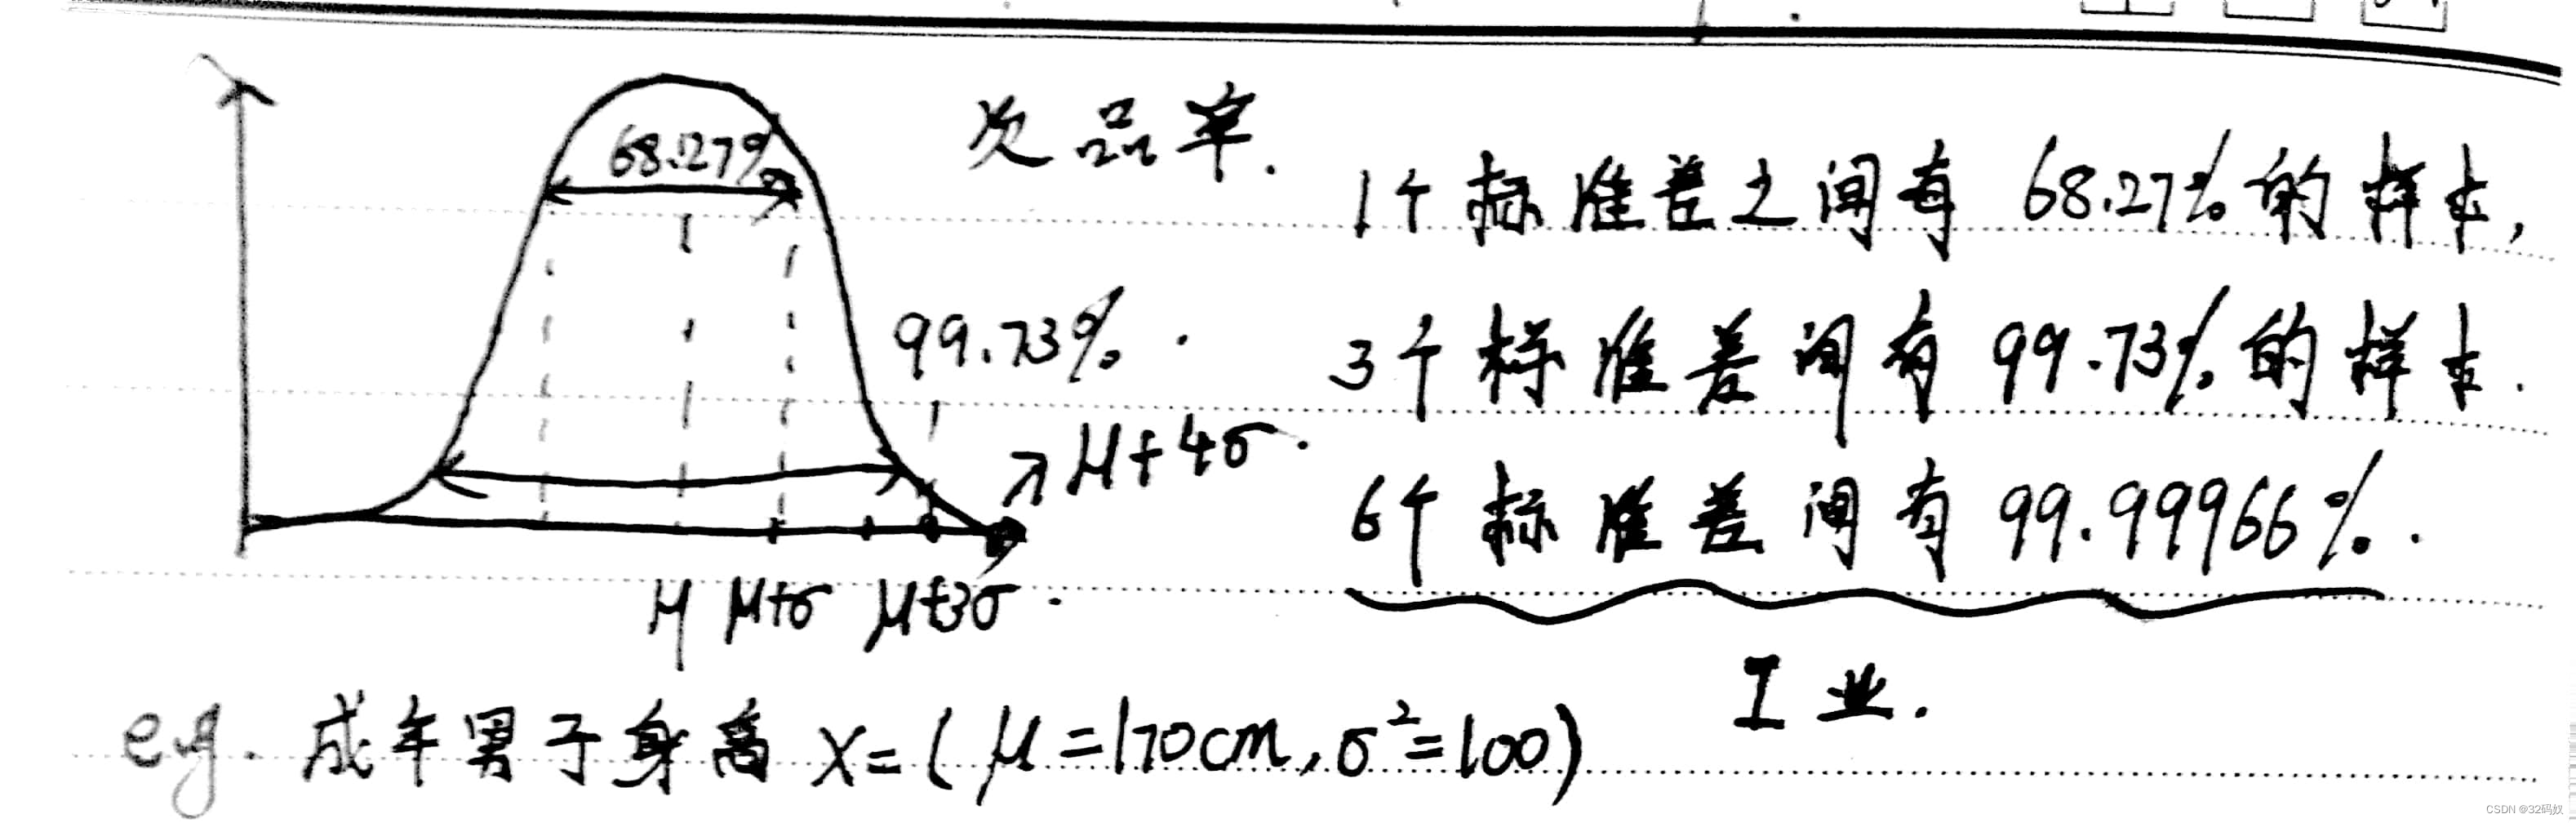 68.27%
次品率.
1个标准差之间有 68.27%的样本,
99.73%.
3个标准差间有 99.73%的样本.
μ+4σ.
6个标准差间有 99.99966%.
μ μ+σ μ+3σ.
工业.
e.g. 成年男子身高 X=(μ=170cm,σ²=100)
CSDN @32码奴